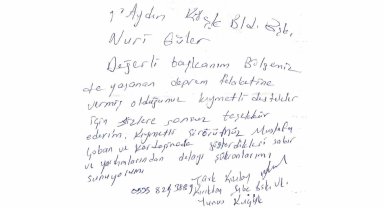 Aydın Köşk Bld. Bşk.
Nuri Güler
Değerli başkanım Bölgemiz
de yaşanan deprem felaketine
vermiş olduğunuz kıymetli destekler
için sizlere sonsuz teşekkür
ederim. Kıymetli şöförünüz Mustafa
Çoban ve kardeşimde gösterdikleri sabır
ve yardımlarından dolayı şükranlarımı
sunuyorum
Kızılay
Şube Bşk. V.
Yunus